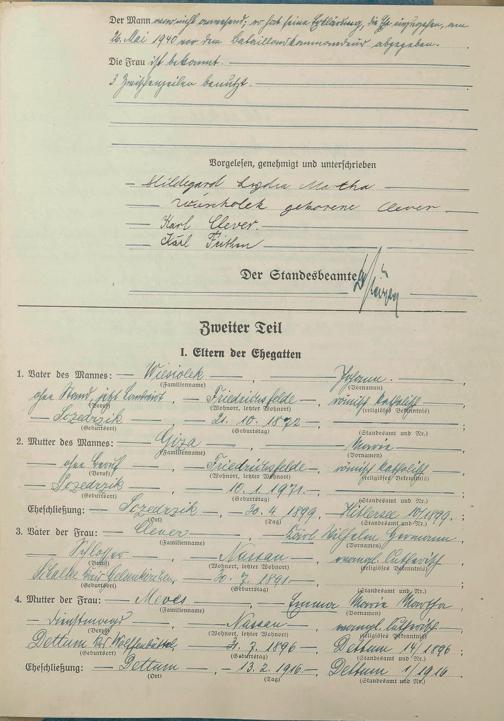 Der Mann war nicht anwesend; er hat seine Erklärung, die Ehe einzugehen, am
26. Mai 1940 vor dem Bataillonskommandeur abgegeben.
Die Frau ist bekannt.
3 Zwischenzeilen benutzt.
Vorgelesen, genehmigt und unterschrieben
Hildegard Lydia Martha
geborene Clever
Karl Clever.
Karl
Der Standesbeamte
Zweiter Teil
I. Eltern der Ehegatten
1. Vater des Mannes: — Wiesiolek —, Johann —,
(Familienname) (Vornamen)
ohne Stand, jetzt Landwirt, — Friedrichsfelde —, römisch katholisch
(Beruf) (Wohnort, letzter Wohnort) (religiöses Bekenntnis)
— 21. 10. 1872 —
(Geburtsort) (Geburtstag) (Standesamt und Nr.)
2. Mutter des Mannes: — Giza —, Marie —,
(Familienname) (Vornamen)
— ohne Beruf —, Friedrichsfelde —, römisch katholisch
(Beruf) (Wohnort, letzter Wohnort) (religiöses Bekenntnis)
— 10. 1. 1971. —
(Geburtsort) (Geburtstag) (Standesamt und Nr.)
Eheschließung: — 20. 4. 1899 —, 10/1899. ;
(Ort) (Tag) (Standesamt und Nr.)
3. Vater der Frau: — Clever —, Karl Wilhelm Hermann
(Familienname) (Vornamen)
— Schlosser —, Nassau —, evangl. lutherisch
(Beruf) (Wohnort, letzter Wohnort) (religiöses Bekenntnis)
Schalke Kreis Gelsenkirchen, 20. 7. 1891 —
(Geburtsort) (Geburtstag) (Standesamt und Nr.)
4. Mutter der Frau: — Mewes —, Emma Marie Martha
(Familienname) (Vornamen)
— Dienstmagd —, Nassau —, evangl. lutherisch
(Beruf) (Wohnort, letzter Wohnort) (religiöses Bekenntnis)
Dettum Krs. Wolfenbüttel, 7. 1896 —, Dettum 14/1896 ;
(Geburtsort) (Geburtstag) (Standesamt und Nr.)
Eheschließung: — Dettum —, 13. 2. 1916 —, Dettum 1/1916 .
(Ort) (Tag) (Standesamt und Nr.)